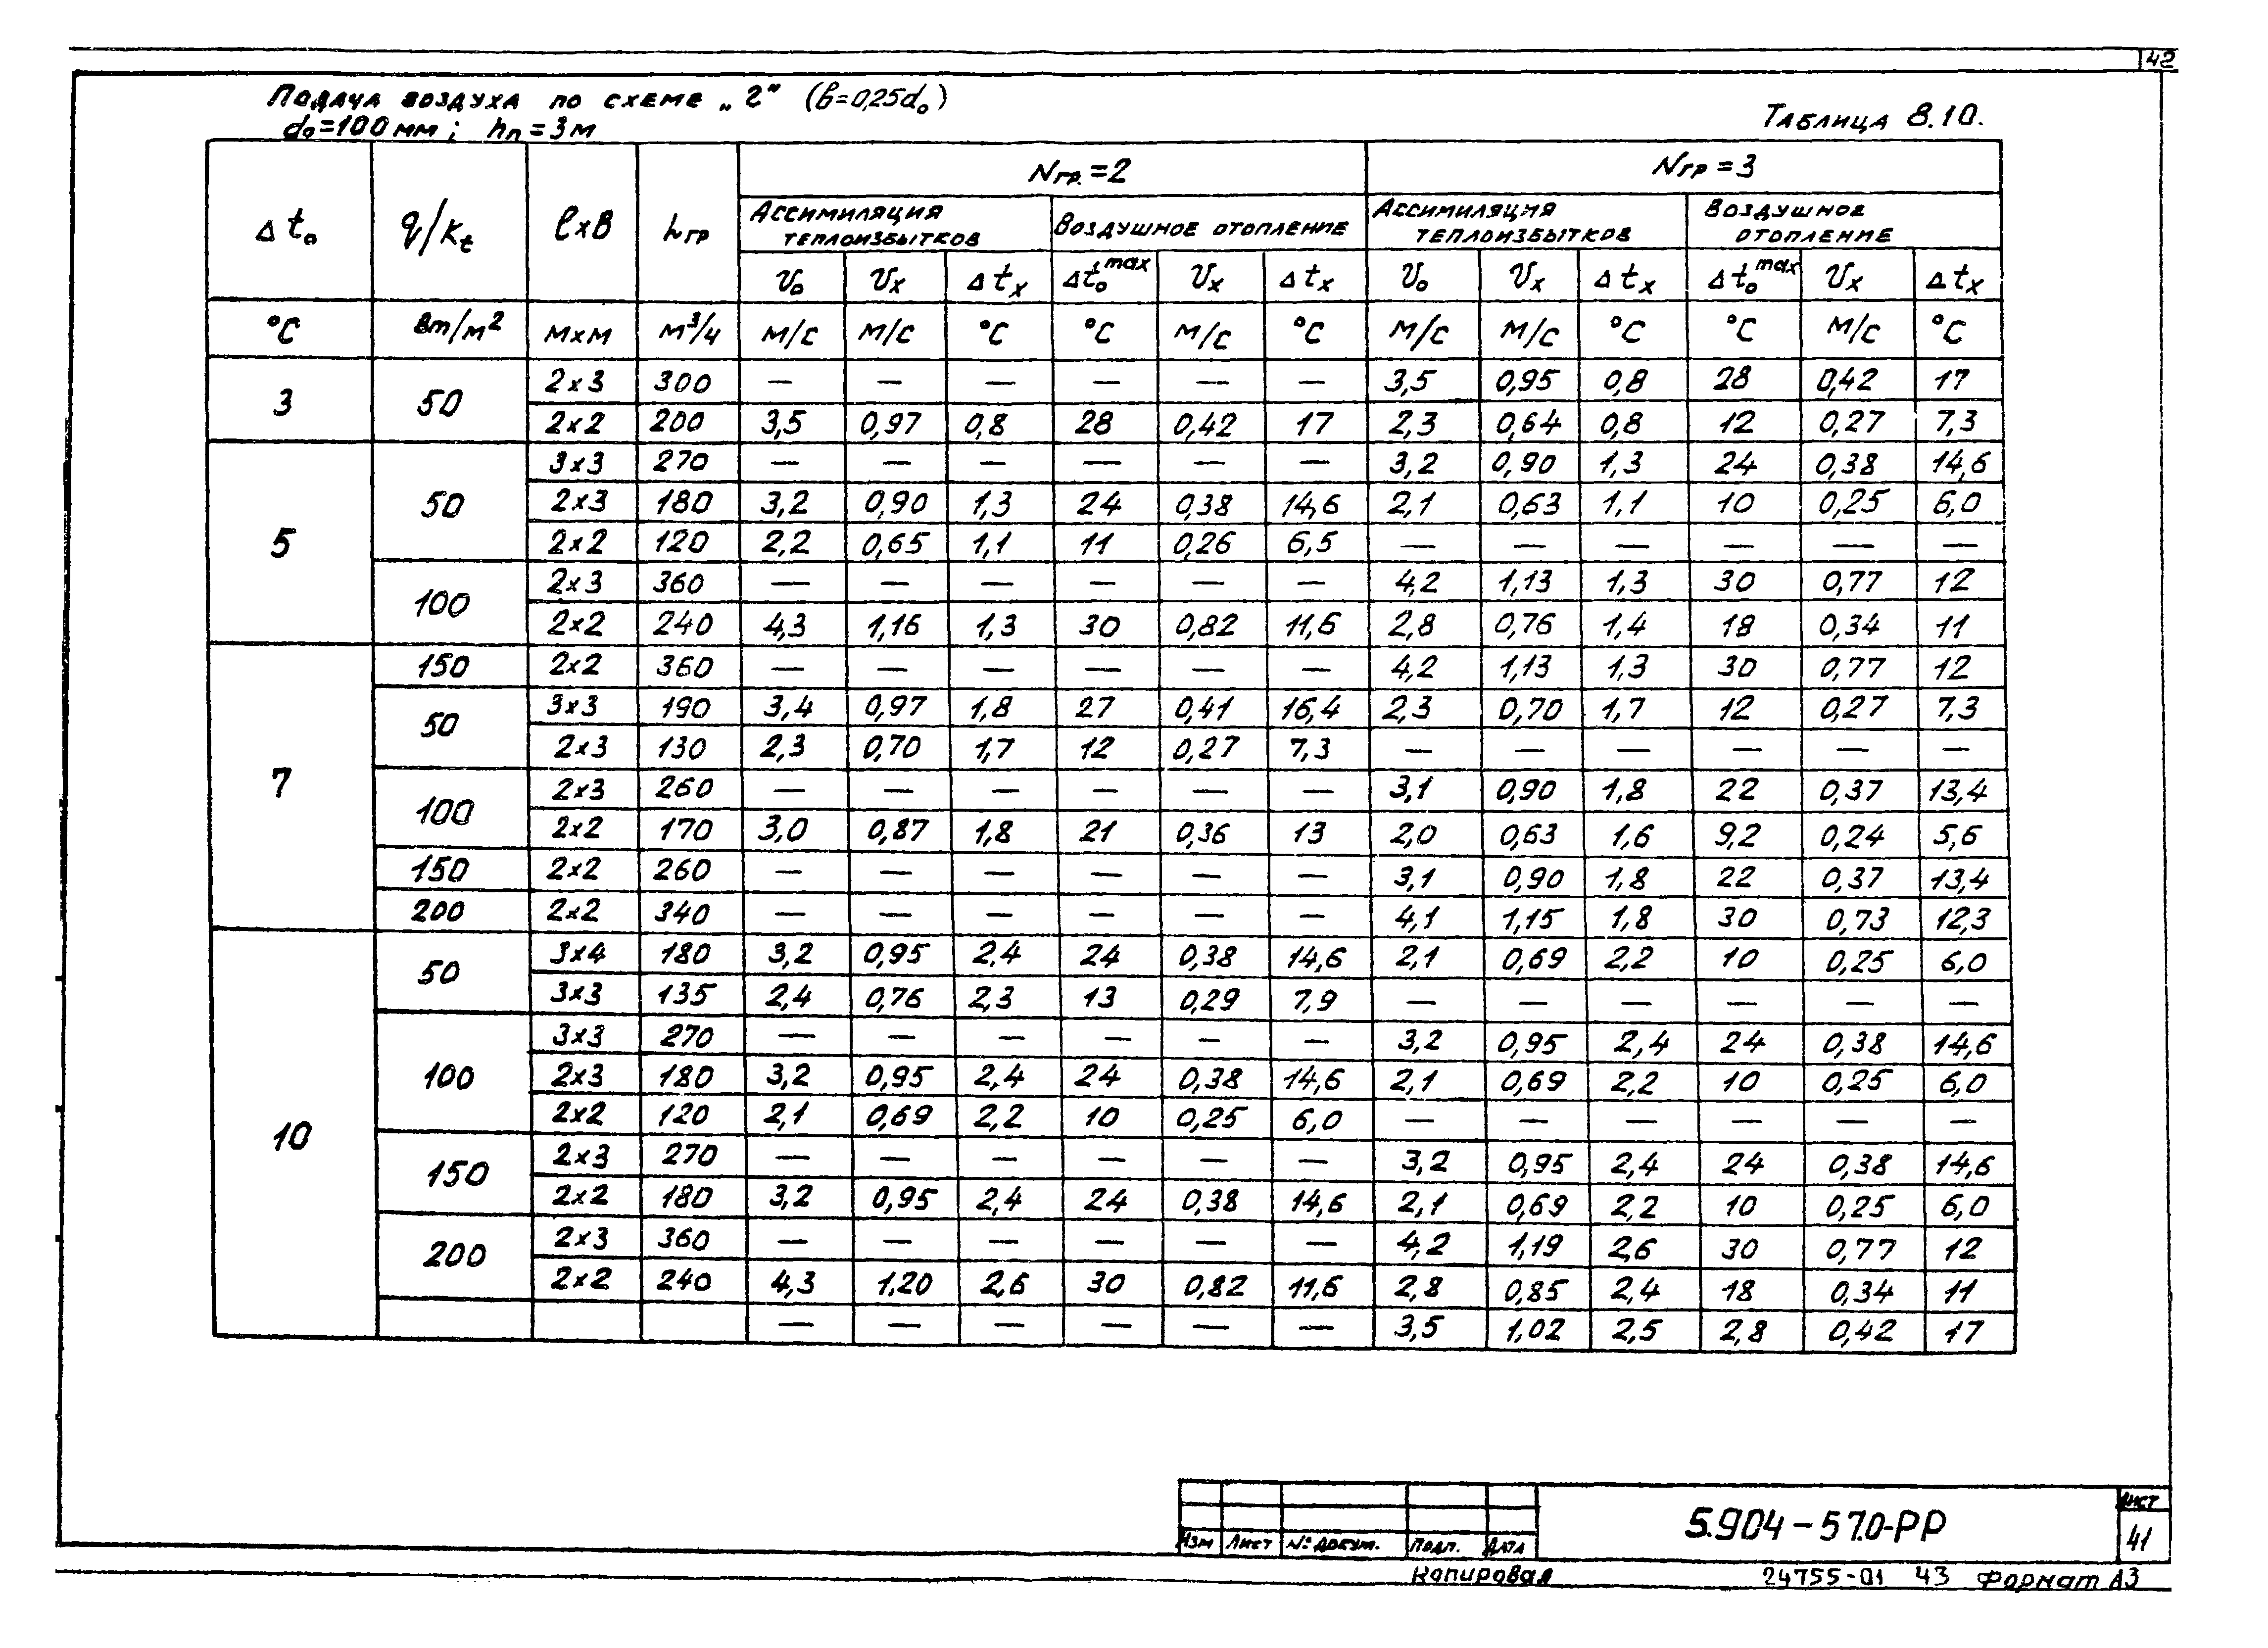 42
Подача воздуха по схеме „2“ (в=0,25d₀)
d₀=100мм; hп=3м
Таблица 8.10.
Δt₀ q/kt ℓxB Lгр Nгр.=2 Nгр=3
Ассимиляция теплоизбытков Воздушное отопление Ассимиляция теплоизбытков Воздушное отопление
V₀ Vx Δtx Δt₀max Vx Δtx V₀ Vx Δtx Δt₀max Vx Δtx
°C Вт/м² мxм м³/ч м/с м/с °C °C м/с °C м/с м/с °C °C м/с °C
3 50 2x3 300 — — — — — — 3,5 0,95 0,8 28 0,42 17
2x2 200 3,5 0,97 0,8 28 0,42 17 2,3 0,64 0,8 12 0,27 7,3
5 50 3x3 270 — — — — — — 3,2 0,90 1,3 24 0,38 14,6
2x3 180 3,2 0,90 1,3 24 0,38 14,6 2,1 0,63 1,1 10 0,25 6,0
2x2 120 2,2 0,65 1,1 11 0,26 6,5 — — — — — —
100 2x3 360 — — — — — — 4,2 1,13 1,3 30 0,77 12
2x2 240 4,3 1,16 1,3 30 0,82 11,6 2,8 0,76 1,4 18 0,34 11
7 150 2x2 360 — — — — — — 4,2 1,13 1,3 30 0,77 12
50 3x3 190 3,4 0,97 1,8 27 0,41 16,4 2,3 0,70 1,7 12 0,27 7,3
2x3 130 2,3 0,70 1,7 12 0,27 7,3 — — — — — —
100 2x3 260 — — — — — — 3,1 0,90 1,8 22 0,37 13,4
2x2 170 3,0 0,87 1,8 21 0,36 13 2,0 0,63 1,6 9,2 0,24 5,6
150 2x2 260 — — — — — — 3,1 0,90 1,8 22 0,37 13,4
200 2x2 340 — — — — — — 4,1 1,15 1,8 30 0,73 12,3
10 50 3x4 180 3,2 0,95 2,4 24 0,38 14,6 2,1 0,69 2,2 10 0,25 6,0
3x3 135 2,4 0,76 2,3 13 0,29 7,9 — — — — — —
100 3x3 270 — — — — — — 3,2 0,95 2,4 24 0,38 14,6
2x3 180 3,2 0,95 2,4 24 0,38 14,6 2,1 0,69 2,2 10 0,25 6,0
2x2 120 2,1 0,69 2,2 10 0,25 6,0 — — — — — —
150 2x3 270 — — — — — — 3,2 0,95 2,4 24 0,38 14,6
2x2 180 3,2 0,95 2,4 24 0,38 14,6 2,1 0,69 2,2 10 0,25 6,0
200 2x3 360 — — — — — — 4,2 1,19 2,6 30 0,77 12
2x2 240 4,3 1,20 2,6 30 0,82 11,6 2,8 0,85 2,4 18 0,34 11
— — — — — — 3,5 1,02 2,5 2,8 0,42 17
5.904-57.0-РР
Лист
41
Изм Лист № докум. Подп. Дата
Копировал 24755-01 43 Формат А3